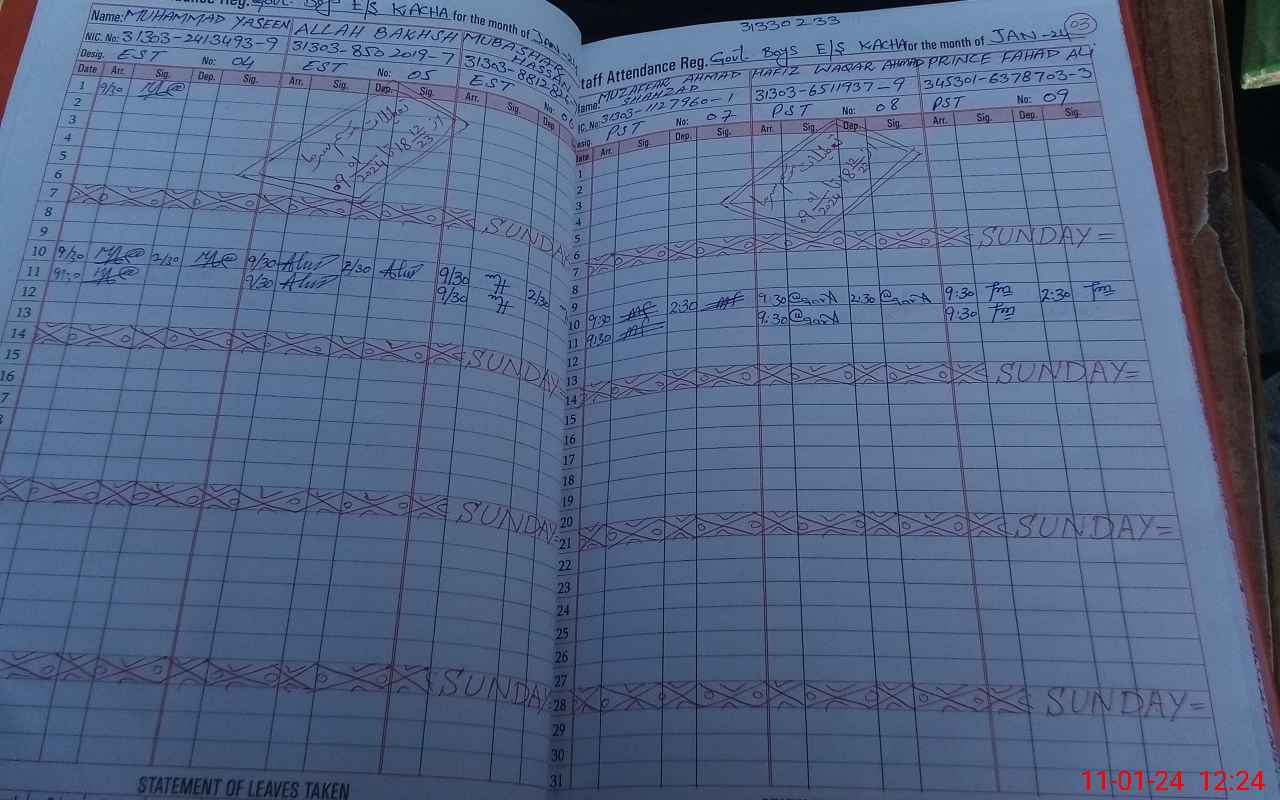 Name: MUHAMMAD YASEEN ALLAH BAKHSH MUBASHAR HASSAN
Govt. Boys E/S KACHA for the month of JAN-24
NIC. No: 31303-2413493-9 31303-850 2019-7 31303-8812826
Desig. EST No: 04 EST No: 05 EST No:
Date Arr. Sig. Dep. Sig. Arr. Sig. Dep. Sig. Arr. Sig. Dep.
1 9/30
2
3
4
5
6
7 SUNDAY
8
9
10 9/30 2/30 9/30 2/30 9/30 2/30
11 9/30 9/30 9/30
12
13
14 SUNDAY
15
16
SUNDAY=
SUNDAY=
STATEMENT OF LEAVES TAKEN
31330233
03
Staff Attendance Reg. Govt. Boys E/S KACHA for the month of JAN-24
Name: MUZAFFAR AHMAD SHAHZAD HAFIZ WAQAR AHMAD PRINCE FAHAD ALI
NIC. No: 31303-1127960-1 31303-6511937-9 345301-6378703-3
Desig. PST No: 07 PST No: 08 PST No: 09
Date Arr. Sig. Dep. Sig. Arr. Sig. Dep. Sig. Arr. Sig. Dep. Sig.
تعطیلات موسم سرما
از 18 12/23 تا 09 01/2024
1
2
3
4
5
6
7 SUNDAY=
8
9
10 9:30 2:30 9:30 2:30 9:30 2:30
11 9:30 9:30 9:30
12
13
14 SUNDAY=
15
16
17
18
19
20
21 SUNDAY=
22
23
24
25
26
27
28 SUNDAY=
29
30
31
11-01-24 12:24